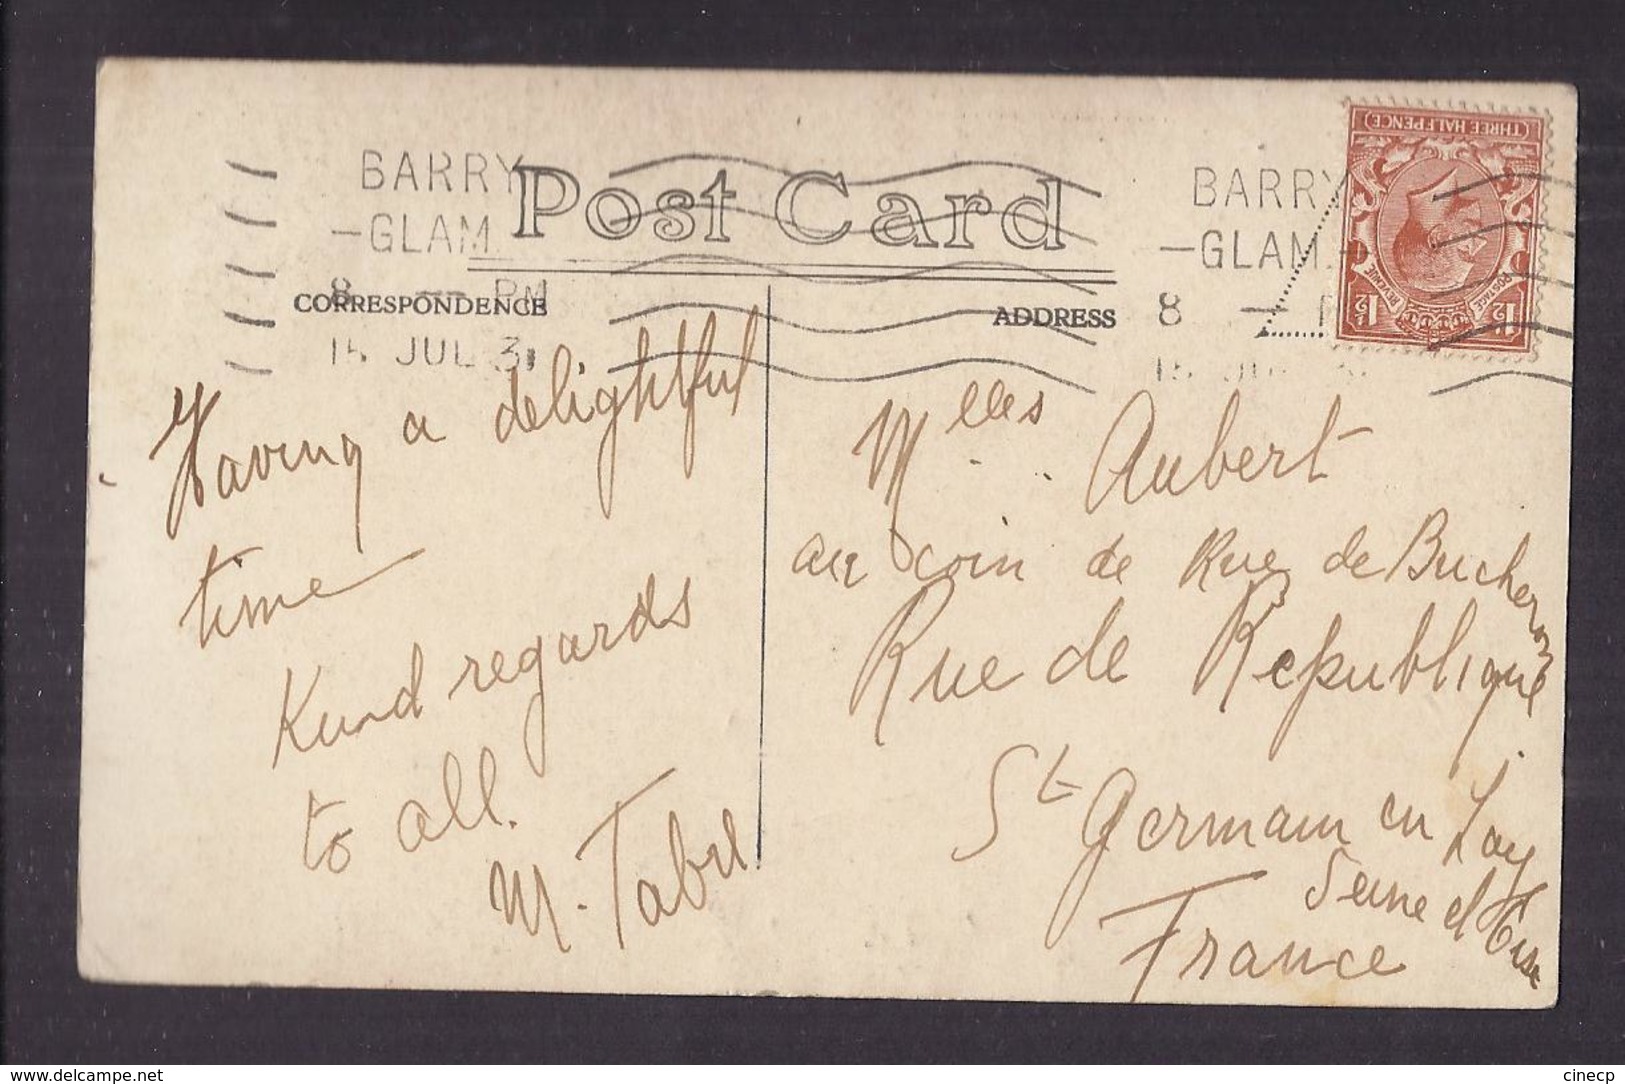 BARRY
-GLAM.
8 — PM
15 JUL 31
Post Card
BARRY
-GLAM.-
8 —
15 JUL 31
THREE HALFPENCE
POSTAGE
REVENUE
1½
1½
CORRESPONDENCE
ADDRESS
Having a delightful
time
Kind regards
to all.
M.
Mlles Aubert
au coin de Rue de Bucheron
Rue de Republique
St Germain en Lay
Seine et Oise
France
https://www.delcampe.net
cinecp